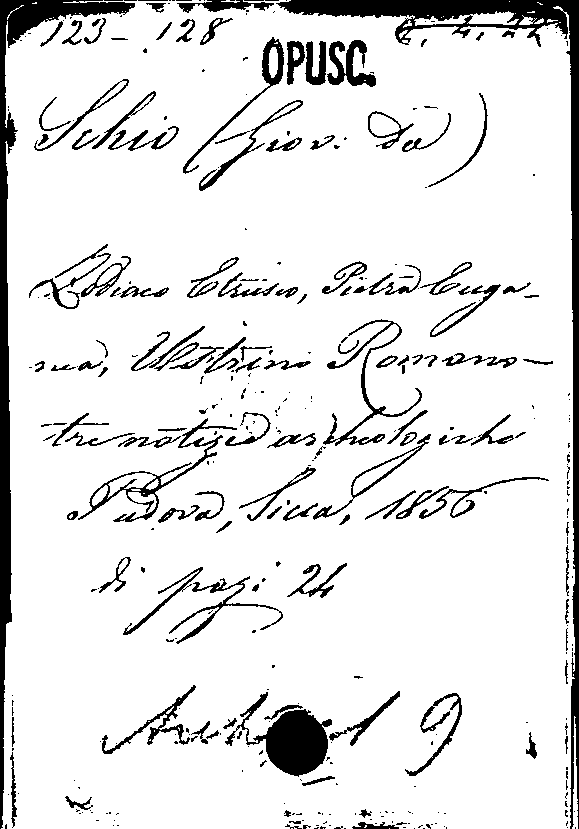 123 - 128
OPUSC.
Schio (Giov: Da)
Zodiaco Etrusco, Pietra Euga-
nea, Ustrino Romano-
tre notizie archeologiche
Padova, Sicca, 1856
di pagi: 24
9